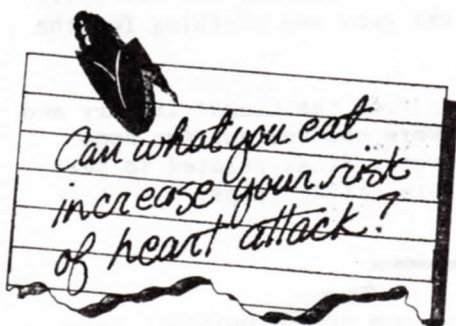 Can what you eat
increase your risk
of heart attack?